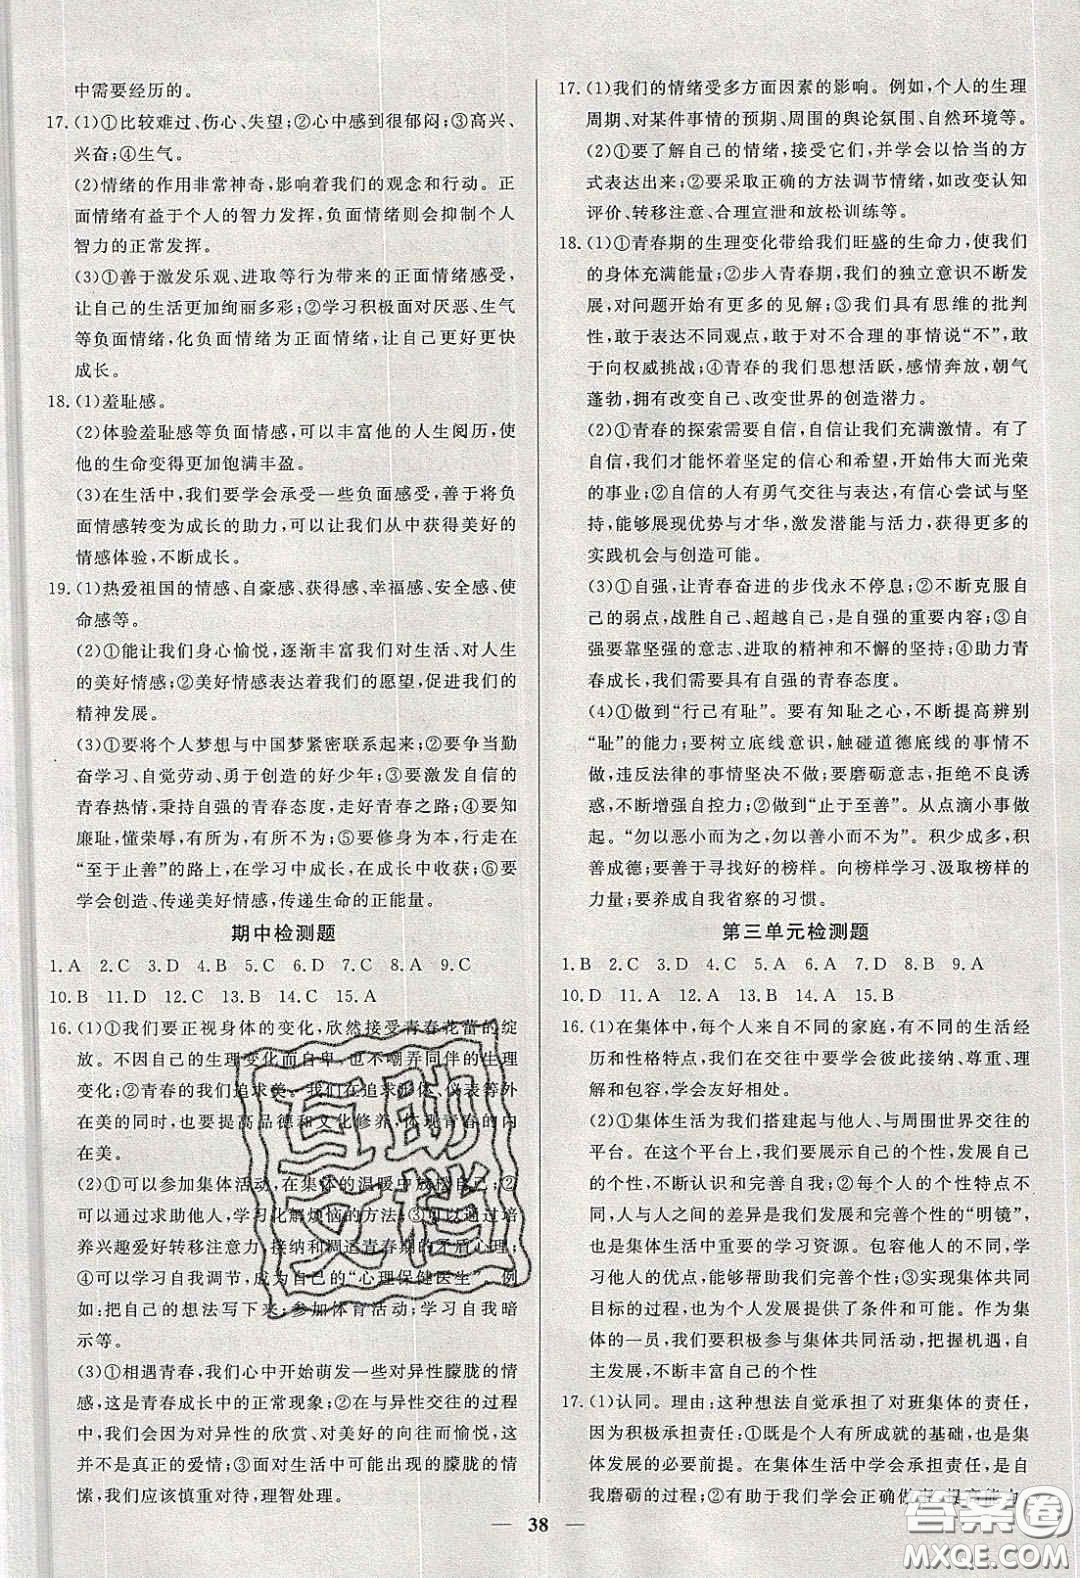 中需要经历的。
17. (1)①比较难过、伤心、失望;②心中感到很郁闷;③高兴、
兴奋;④生气。
(2)情绪的作用非常神奇,影响着我们的观念和行动。正
面情绪有益于个人的智力发挥,负面情绪则会抑制个人
智力的正常发挥。
(3)①善于激发乐观、进取等行为带来的正面情绪感受,
让自己的生活更加绚丽多彩;②学习积极面对厌恶、生气
等负面情绪,化负面情绪为正面情绪,让自己更加快乐
成长。
18. (1)羞耻感。
(2)体验羞耻感等负面情感,可以丰富他的人生阅历,使
他的生命变得更加饱满丰盈。
(3)在生活中,我们要学会承受一些负面感受,善于将负
面情感转变为成长的助力,可以让我们从中获得美好的
情感体验,不断成长。
19. (1)热爱祖国的情感、自豪感、获得感、幸福感、安全感、使
命感等。
(2)①能让我们身心愉悦,逐渐丰富我们对生活、对人生
的美好情感;②美好情感表达着我们的愿望,促进我们的
精神发展。
(3)①要将个人梦想与中国梦紧密联系起来;②要争当勤
奋学习、自觉劳动、勇于创造的好少年;③要激发自信的
青春热情,秉持自强的青春态度,走好青春之路;④要知
廉耻,懂荣辱,有所为,有所不为;⑤要修身为本,行走在
“至于止善”的路上,在学习中成长,在成长中收获;⑥要
学会创造、传递美好情感,传递生命的正能量。
期中检测题
1. A 2. C 3. D 4. B 5. C 6. D 7. C 8. A 9. C
10. B 11. D 12. C 13. B 14. C 15. A
16. (1)①我们要正视身体的变化,欣然接受青春花蕾的绽
放。不因自己的生理变化而自卑,也不嘲弄同伴的生理
变化;②青春的我们追求美。我们在追求形体、仪表等外
在美的同时,也要提高品德和文化修养,体现青春的内
在美。
(2)①可以参加集体活动,在集体的温暖中放松自己;②
可以通过求助他人,学习化解烦恼的方法;③可以通过培
养兴趣爱好转移注意力,接纳和调适青春期的矛盾心理;
④可以学习自我调节,成为自己的“心理保健医生”,例
如:把自己的想法写下来;参加体育活动;学习自我暗
示等。
(3)①相遇青春,我们心中开始萌发一些对异性朦胧的情
感,这是青春成长中的正常现象;②在与异性交往的过程
中,我们会因为对异性的欣赏、对美好的向往而愉悦,我们
要珍惜这种情感;③面对生活中可能出现的朦胧的情
愫,我们应该慎重对待,理智处理。
17. (1)我们的情绪受多方面因素的影响。例如,个人的生理
周期、对某件事情的预期、周围的舆论氛围、自然环境等。
(2)①要了解自己的情绪,接受它们,并学会以恰当的方
式表达出来;②要采取正确的方法调节情绪,如改变认知
评价、转移注意、合理宣泄和放松训练等。
18. (1)①青春期的生理变化带给我们旺盛的生命力,使我们
的身体充满能量;②步入青春期,我们的独立意识不断发
展,对问题开始有更多的见解;③我们具有思维的批判
性,敢于表达不同观点,敢于对不合理的事情说“不”,敢
于向权威挑战;④青春的我们思想活跃,感情奔放,朝气
蓬勃,拥有改变自己、改变世界的创造潜力。
(2)①青春的探索需要自信,自信让我们充满激情。有了
自信,我们才能怀着坚定的信心和希望,开始伟大而光荣
的事业;②自信的人有勇气交往与表达,有信心尝试与坚
持,能够展现优势与才华,激发潜能与活力,获得更多的
实践机会与创造可能。
(3)①自强,让青春奋进的步伐永不停息;②不断克服自
己的弱点,战胜自己、超越自己,是自强的重要内容;③自
强要靠坚强的意志、进取的精神和不懈的坚持;④助力青
春成长,我们需要具有自强的青春态度。
(4)①做到“行己有耻”。要有知耻之心,不断提高辨别
“耻”的能力;要树立底线意识,触碰道德底线的事情不
做,违反法律的事情坚决不做;要磨砺意志,拒绝不良诱
惑,不断增强自控力;②做到“止于至善”。从点滴小事做
起。“勿以恶小而为之,勿以善小而不为”。积少成多,积
善成德;要善于寻找好的榜样。向榜样学习、汲取榜样的
力量;要养成自我省察的习惯。
第三单元检测题
1. B 2. C 3. D 4. C 5. A 6. C 7. B 8. B 9. A
10. D 11. D 12. D 13. A 14. A 15. B
16. (1)在集体中,每个人来自不同的家庭,有不同的生活经
历和性格特点,我们在交往中要学会彼此接纳、尊重、理
解和包容,学会友好相处。
(2)①集体生活为我们搭建起与他人、与周围世界交往的
平台。在这个平台上,我们要主动参与各种活动,发展自
己的个性,不断认识和完善自我;②每个人的个性不尽相
同,人与人之间的差异是我们发展和完善个性的“明镜”,
也是集体生活中重要的学习资源。包容他人的不同,学
习他人的优点,能够帮助我们完善个性;③实现集体共同
目标的过程,也为个人发展提供了条件和可能。作为集
体的一员,我们要积极参与集体共同活动,把握机遇,自
主发展,不断丰富自己的个性
17. (1)认同。理由:这种想法自觉承担了对班集体的责任,
我们要积极承担责任:①既是个人有所成就的基础,也是集体
发展的必要前提。在集体生活中学会承担责任,是自
我磨砺的过程;②有助于我们学会正确做
38
互助文档
答案圈
MXQE.COM